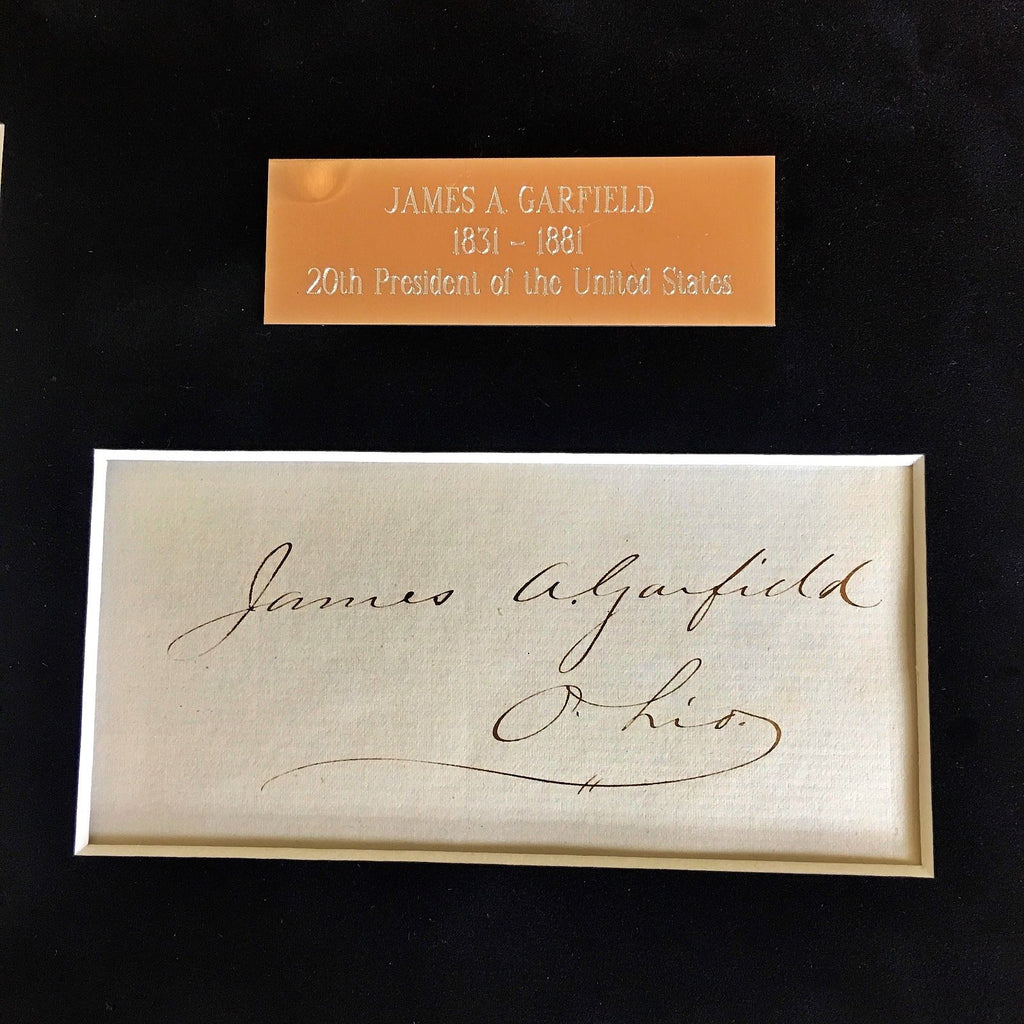 JAMES A. GARFIELD
1831 – 1881
20th President of the United States
James A. Garfield
Ohio.